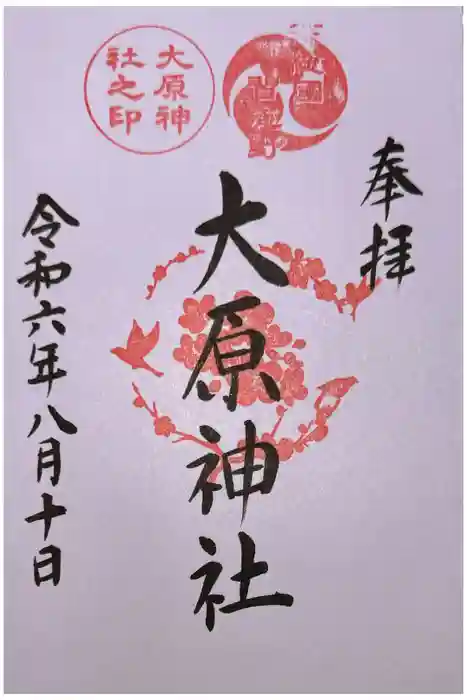 奉拝
大原神社
令和六年八月十日
大原神
社之印